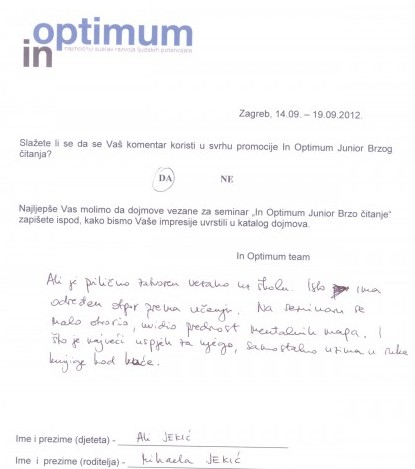 in optimum
Zagreb, 14.09. – 19.09.2012.
Slažete li se da se Vaš komentar koristi u svrhu promocije In Optimum Junior Brzog
čitanja?
DA NE
Najljepše Vas molimo da dojmove vezane za seminar „In Optimum Junior Brzo čitanje“
zapišete ispod, kako bismo Vaše impresije uvrstili u katalog dojmova.
In Optimum team
Ali je prilično zatvoren vezano uz školu. Isto ima
određen otpor prema učenju. Na seminaru se
malo otvorio, uvidio prednost mentalnih mapa. I
što je najveći uspjeh za njega, samostalno uzima u ruke
knjige kod kuće.
Ime i prezime (djeteta) - Ali JEKIĆ
Ime i prezime (roditelja) - Mihaela JEKIĆ